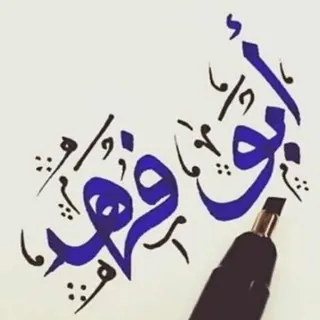 أبو فهد